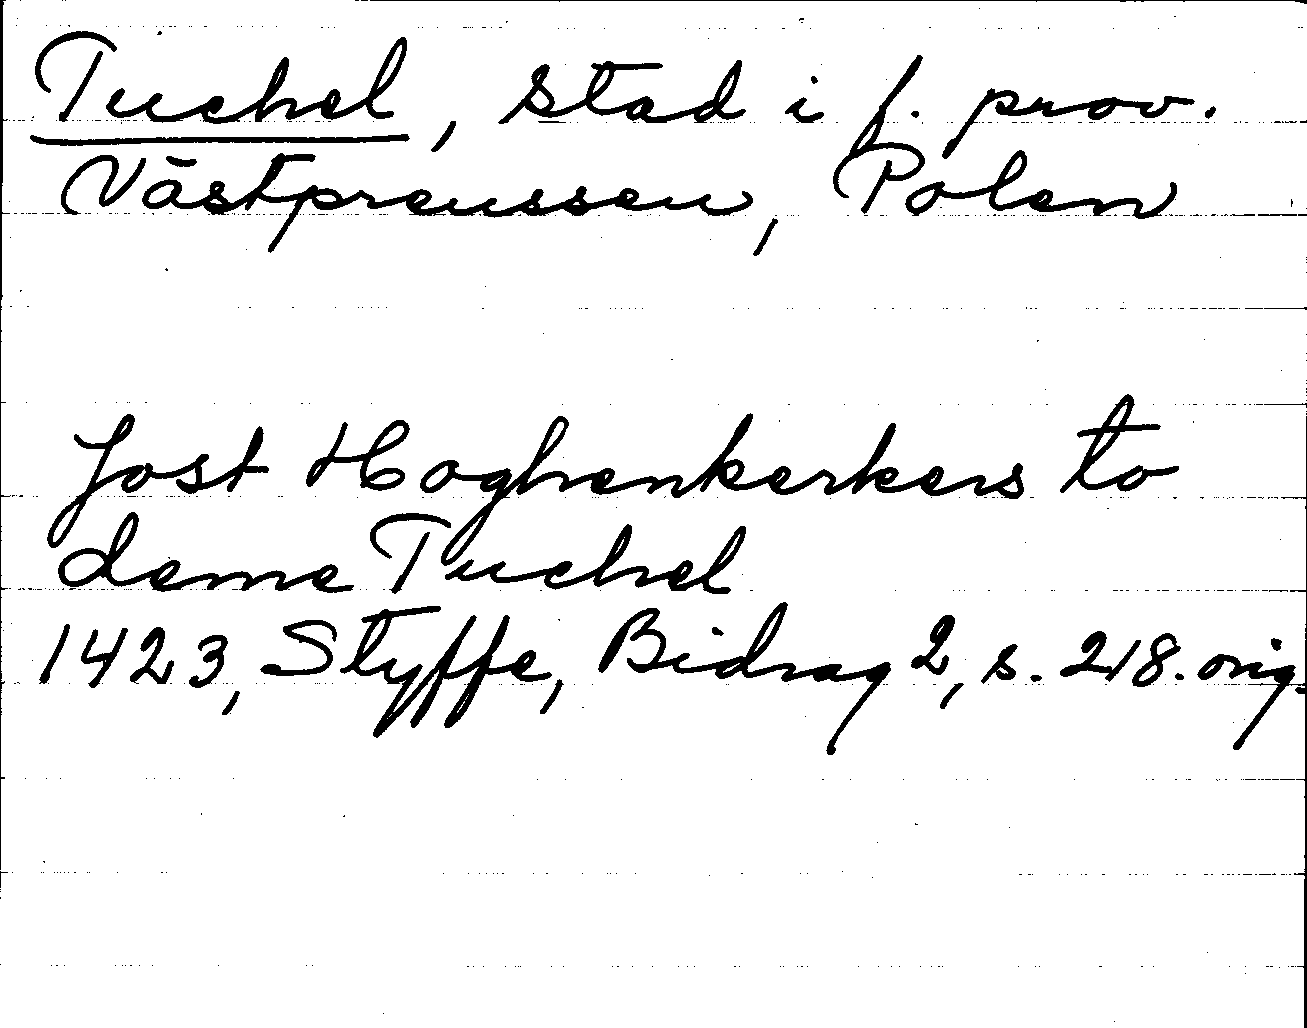 Tuchel, stad i f. prov.
Västpreussen, Polen
Jost Hoghenkerkers to
deme Tuchel
1423, Styffe, Bidrag 2, s. 218. orig.